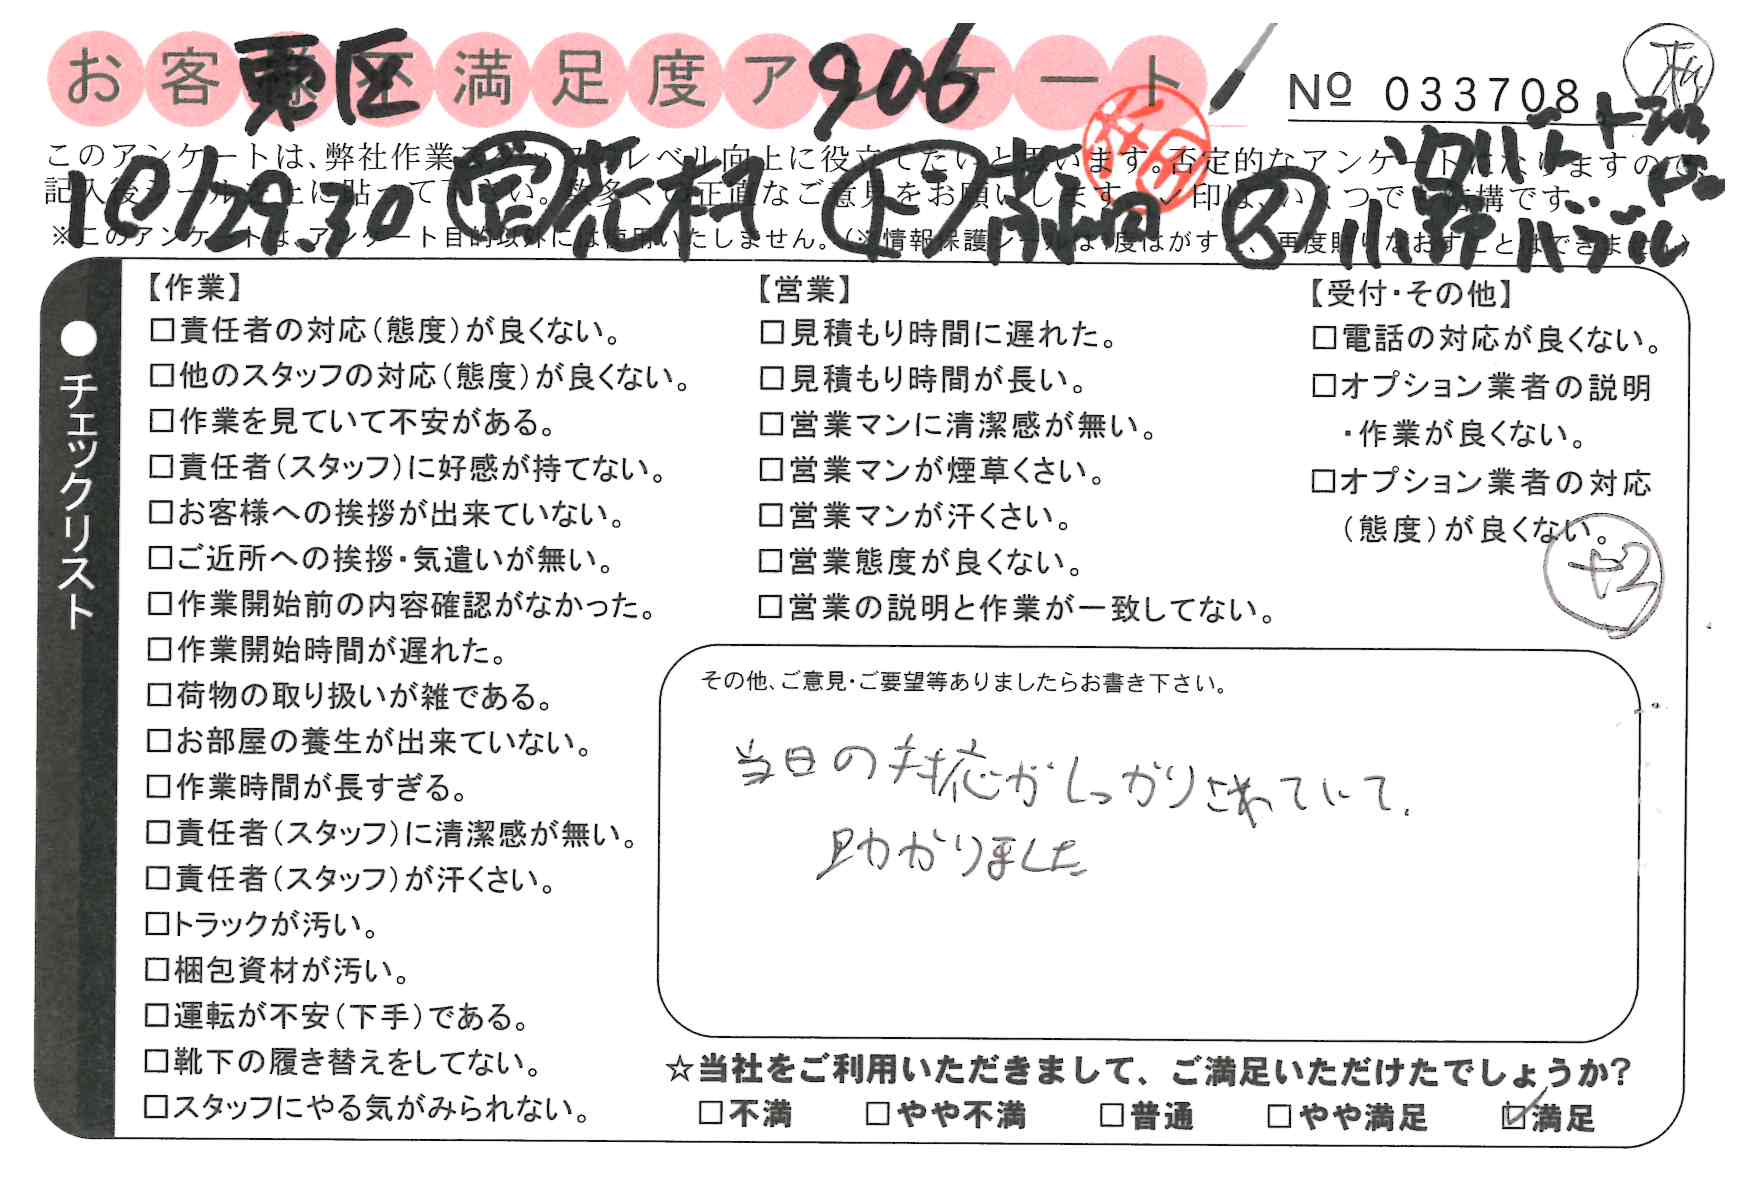 お客様 満足度アンケート
東区 906
№ 033708
このアンケートは、弊社作業スタッフのレベル向上に役立てたいと思います。否定的なアンケートになりますので、
記入後シールを上に貼って下さい。数多くの正直なご意見をお願いします。✓印は、いくつでも結構です。
※このアンケートは、アンケート目的以外には使用いたしません。(※情報保護シールは1度はがすと、再度貼りなおすことはできません)
10/29.30 営 花村 下 小野 ハブル
●チェックリスト
【作業】
□責任者の対応(態度)が良くない。
□他のスタッフの対応(態度)が良くない。
□作業を見ていて不安がある。
□責任者(スタッフ)に好感が持てない。
□お客様への挨拶が出来ていない。
□ご近所への挨拶・気遣いが無い。
□作業開始前の内容確認がなかった。
□作業開始時間が遅れた。
□荷物の取り扱いが雑である。
□お部屋の養生が出来ていない。
□作業時間が長すぎる。
□責任者(スタッフ)に清潔感が無い。
□責任者(スタッフ)が汗くさい。
□トラックが汚い。
□梱包資材が汚い。
□運転が不安(下手)である。
□靴下の履き替えをしてない。
□スタッフにやる気がみられない。
【営業】
□見積もり時間に遅れた。
□見積もり時間が長い。
□営業マンに清潔感が無い。
□営業マンが煙草くさい。
□営業マンが汗くさい。
□営業態度が良くない。
□営業の説明と作業が一致してない。
【受付・その他】
□電話の対応が良くない。
□オプション業者の説明
・作業が良くない。
□オプション業者の対応
(態度)が良くない。
+2
その他、ご意見・ご要望等ありましたらお書き下さい。
当日の対応がしっかりされていて、
助かりました
☆当社をご利用いただきまして、ご満足いただけたでしょうか?
□不満 □やや不満 □普通 □やや満足 ☑満足